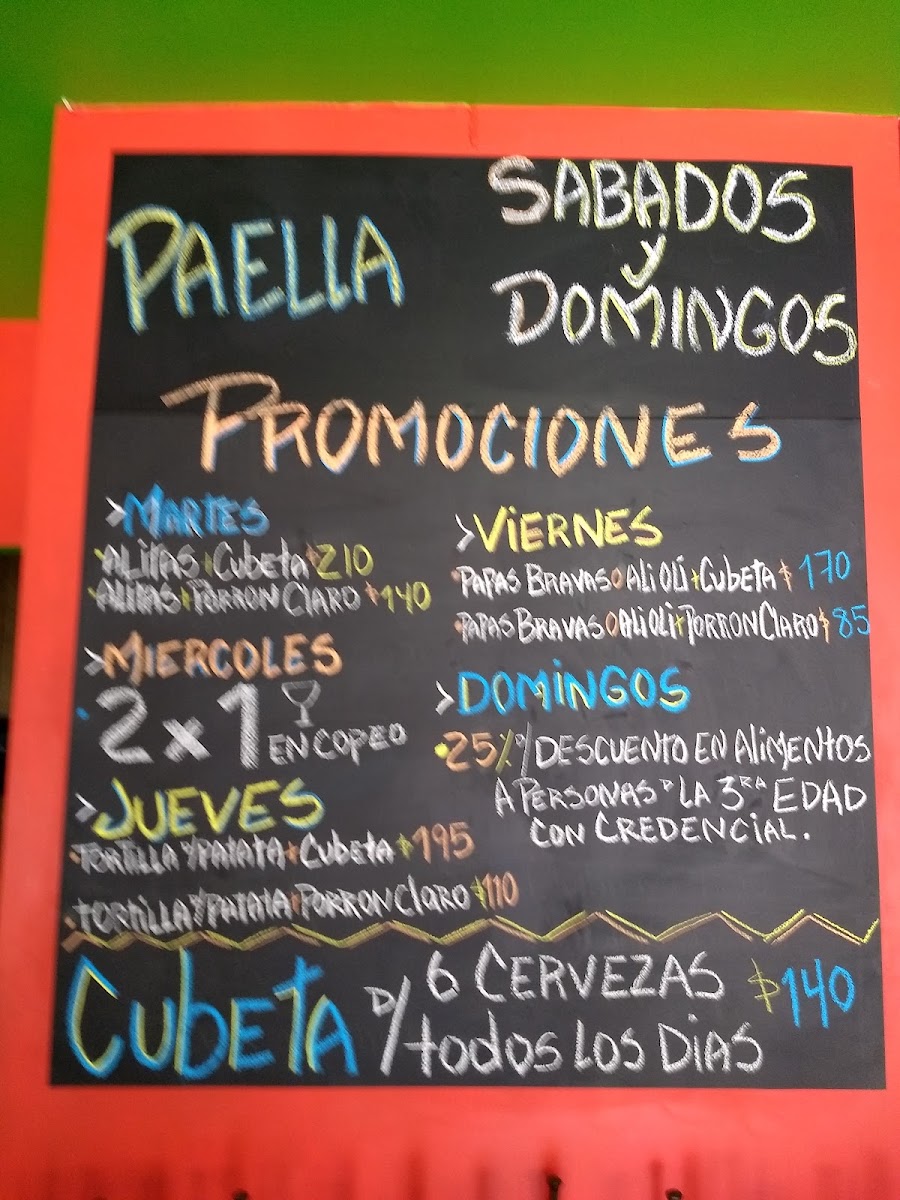 PAELLA
SABADOS
y
DOMINGOS
PROMOCIONES
>MARTES
ALITAS+CUBETA $210
ALITAS+PORRON CLARO $140
>MIERCOLES
2x1
EN COPEO
>JUEVES
TORTILLA Y PATATA+CUBETA $195
TORTILLA Y PATATA+PORRON CLARO $110
>VIERNES
PAPAS BRAVAS O ALIOLI+CUBETA $170
PAPAS BRAVAS O ALIOLI+PORRON CLARO $85
>DOMINGOS
25% D/DESCUENTO EN ALIMENTOS
A PERSONAS D LA 3RA EDAD
CON CREDENCIAL.
CUBETA D/ 6 CERVEZAS $140
todos LOS DIAS